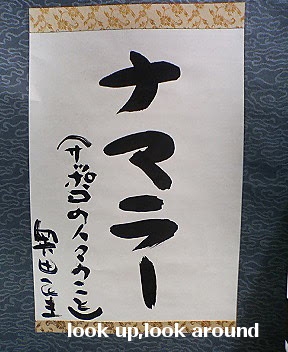 ナマラー
(サッポロの人々のこと)
奥田民生
look up,look around